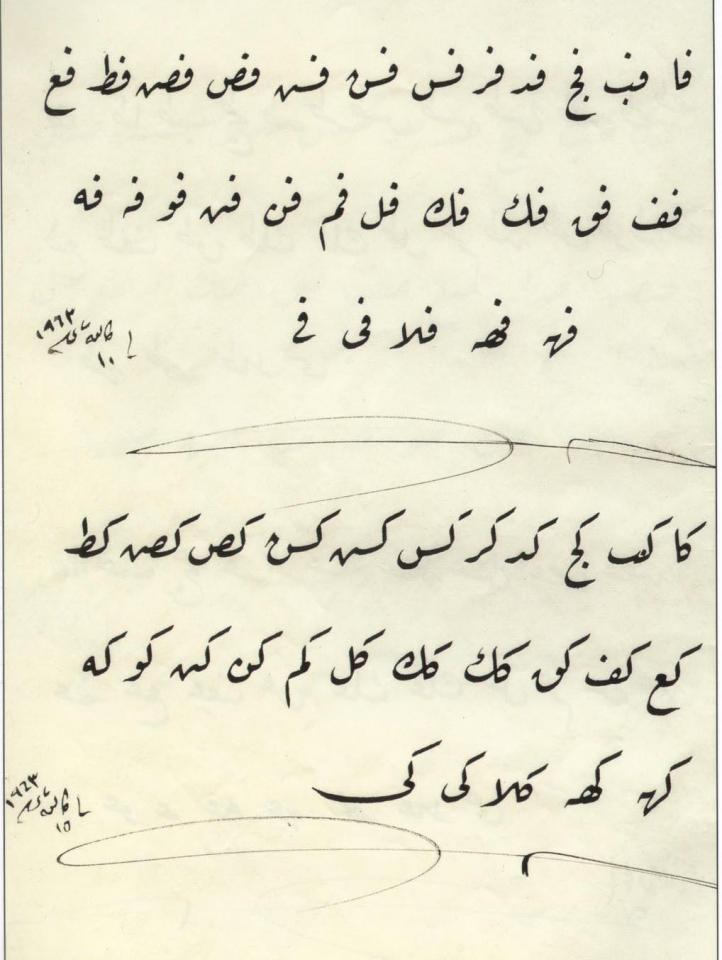 فا فب فج فد فر فس فس فس فص فص فط فع
فف فق فك فك فل فم فن فن فو فه فه
فه فهه فلا فى فے
١٩٦٣
١٠
كا كب كج كد كر كس كس كس كص كص كط
كع كف كق كك كك كل كم كن كن كو كه
كه كهه كلا كى كى
١٩٦٣
١٥